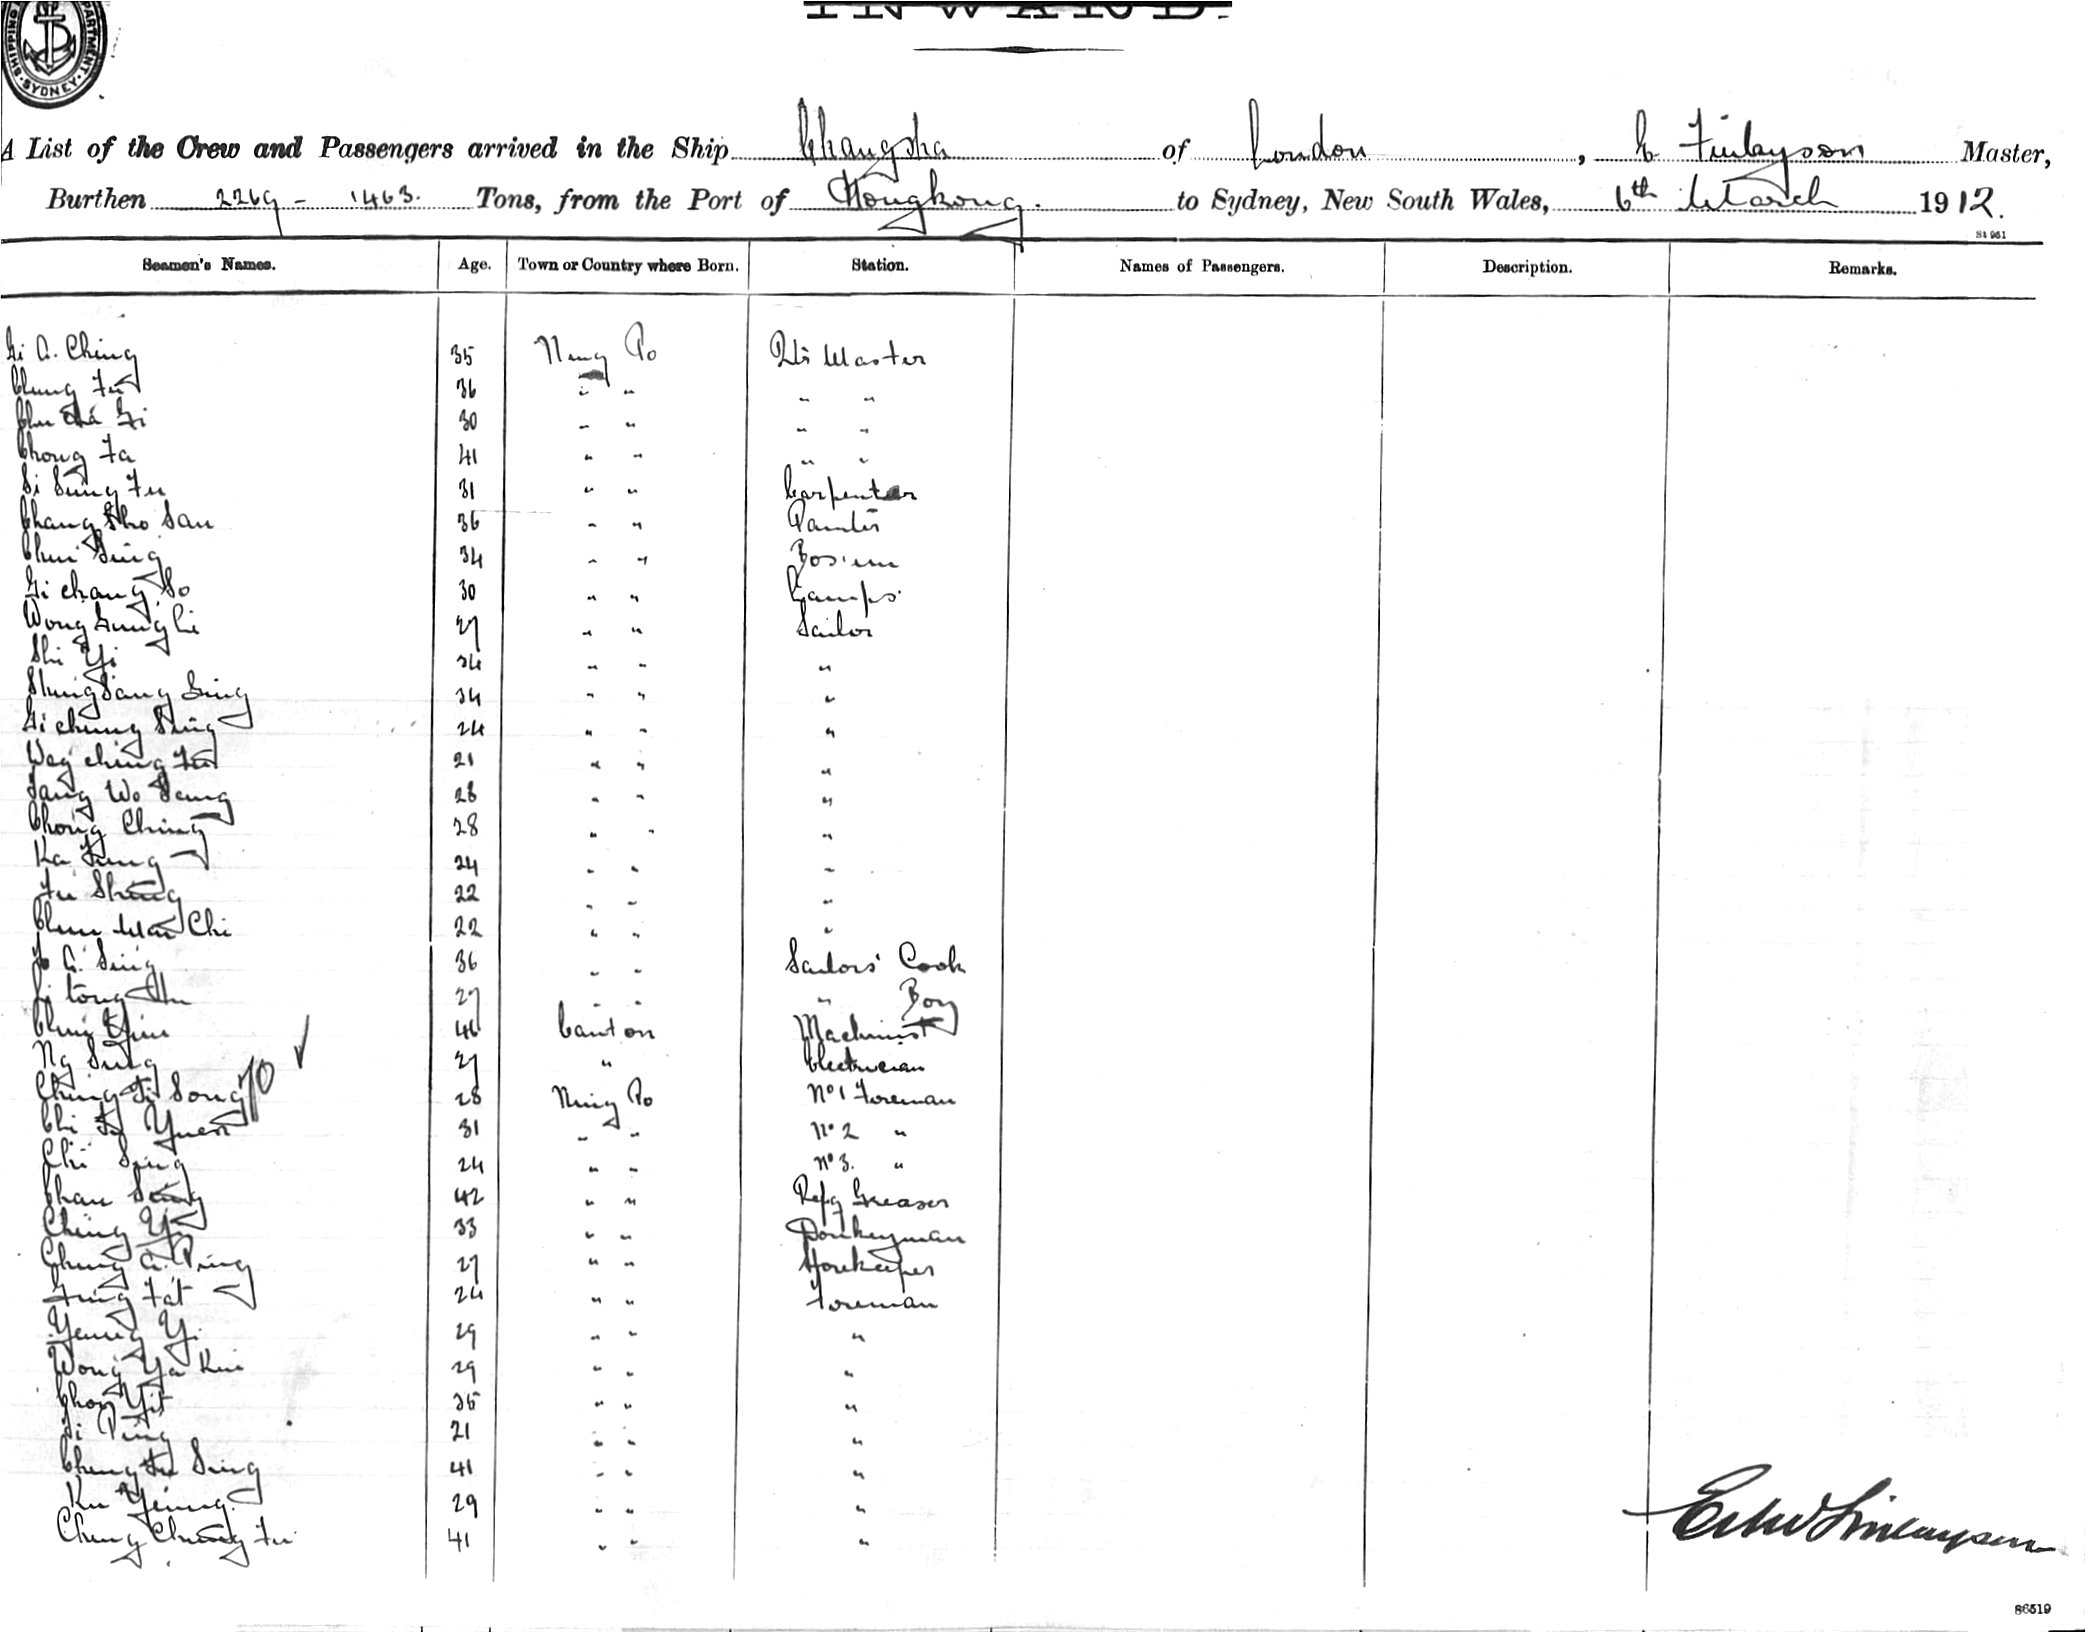 SHIPPING DEPARTMENT. SYDNEY.
INWARD.
A List of the Crew and Passengers arrived in the Ship Changsha of London, E Finlayson Master,
Burthen 2269 - 1463. Tons, from the Port of Hongkong. to Sydney, New South Wales, 6th March 1912.
St 961
Seamen's Names. Age. Town or Country where Born. Station. Names of Passengers. Description. Remarks.
Gi A. Ching 35 Ning Po Qtr Master
Chung Fu 36 " " " "
Chu Gi 30 " " " "
Chong Fa 41 " " " "
Si Sung Fu 31 " " Carpenter
Chang Sho San 36 " " Painter
Chui Sing 34 " " Bos'un
Gi Chang So 30 " " Lamps.
Wong Sung Li 27 " " Sailor
Shi Yi 34 " " "
Shing Sang Sing 34 " " "
Gi Chung Sing 24 " " "
Way Ching Fu 21 " " "
Sang Wo Sang 28 " " "
Chong Ching 28 " " "
Ka Fung 24 " " "
Fu Shing 22 " " "
Chun Wan Chi 22 " " "
A. Sing 36 " " Sailors' Cook
Li Tong 27 " " " Boy
Chung 46 Canton Machinist
Ng Sung 27 " Electrician
Ching Fi Song 28 Ning Po No 1 Foreman
70 ✓
Chi Yuen 31 " " No 2 "
Chi Sing 24 " " No 3. "
Chan Sing 42 " " Refg Greaser
Ching Yi 33 " " Donkeyman
Chung A. Ping 27 " " Storekeeper
Fung Fat 24 " " Foreman
Yeung Yi 29 " " "
Wong Ya Kui 29 " " "
Chon Yit 35 " " "
Si Ping 21 " " "
Cheng Fu Sing 41 " " "
Ku Yeung. 29 " " "
Chung Chung Fu 41 " " "
Edw Finlayson
86519